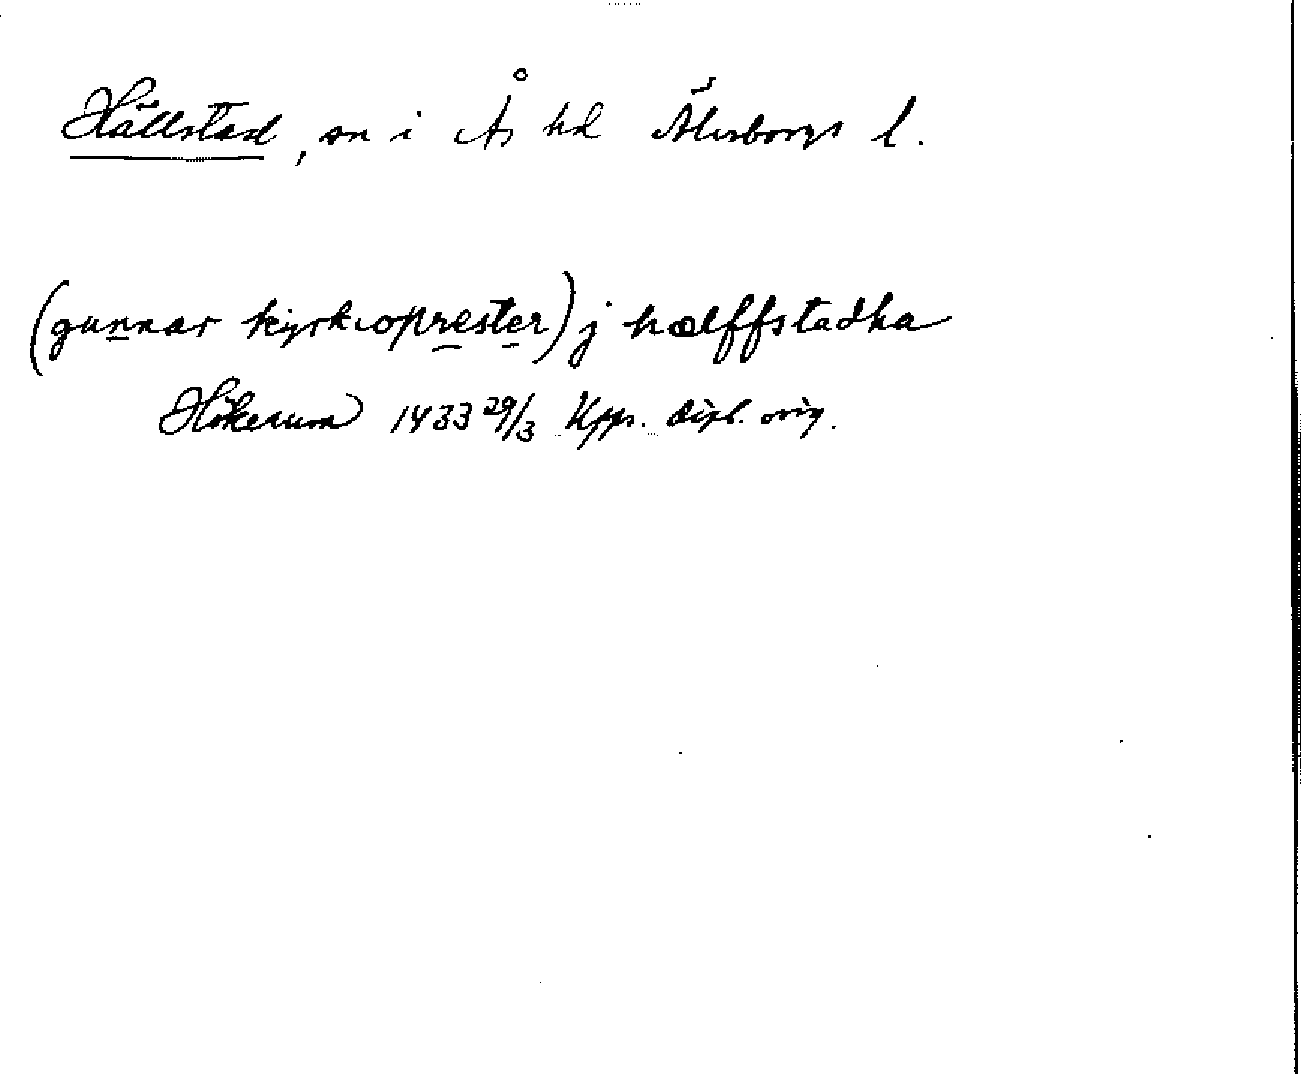 Hällstad, sn i Ås hd Älvsborgs l.
(gunnar kyrkioprester) j hælffstadha
Hökerum 1433 29/3 Kpps. dipl. orig.